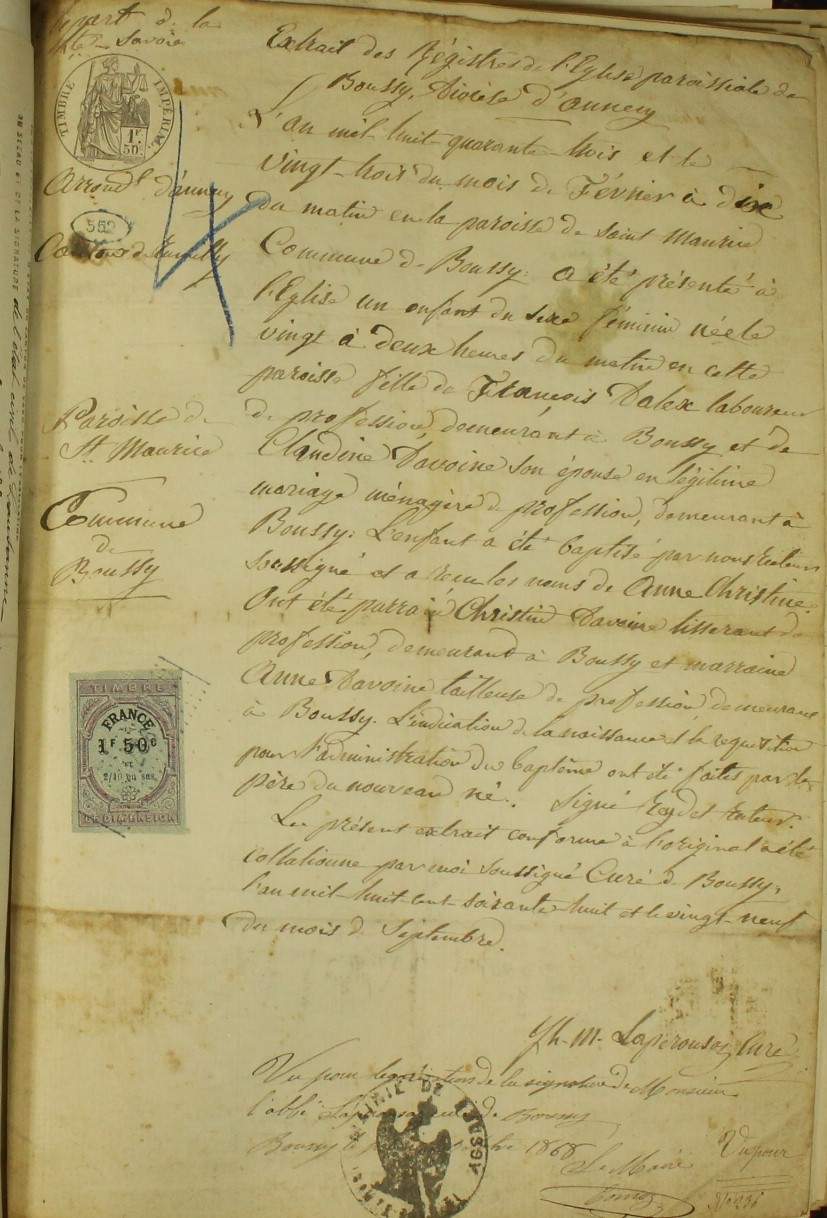 Départ de la
Hte Savoie
TIMBRE IMPÉRIAL
1 F.
50 C.
Arrondt d'annecy
552
Canton de Rumilly
Paroisse de
St Maurice
Commune
de
Boussy
TIMBRE
FRANCE
1F 50C
ET
2/10 EN SUS
DE DIMENSION
Extrait des Régistres de l'Eglise paroissiale de
Boussy, Diocèse d'annecy
L'an mil huit quarante trois et le
vingt-trois du mois de Février à dix
du matin en la paroisse de Saint Maurice
Commune de Boussy. a été présenté à
l'Eglise un enfant du sexe féminin née le
vingt à deux heures du matin en cette
paroisse fille de François Dalex laboureur
de profession, demeurant à Boussy et de
Claudine Davoine son épouse en légitime
mariage ménagère de profession, demeurant à
Boussy. L'enfant a été baptisé par nous Recteur
soussigné et a reçu les noms de Anne Christine.
Ont été parrain Christin Davoine de
profession, demeurant à Boussy et marraine
Anne Davoine tailleuse de profession demeurant
à Boussy. L'indication de la naissance et la requisition
pour l'administration du baptême ont été faites par le
père du nouveau né. Signé Recteur.
Le présent extrait conforme à l'original a été
collationné par moi soussigné Curé de Boussy,
l'an mil huit cent soixante huit et le vingt neuf
du mois de Septembre.
Jh. M. Laperousaz, Curé
Vu pour légalisation de la signature de Monsieur
l'abbé Laperousaz curé de Boussy
Boussy le 1868
MAIRIE DE BOUSSY
Le Maire
Vu pour